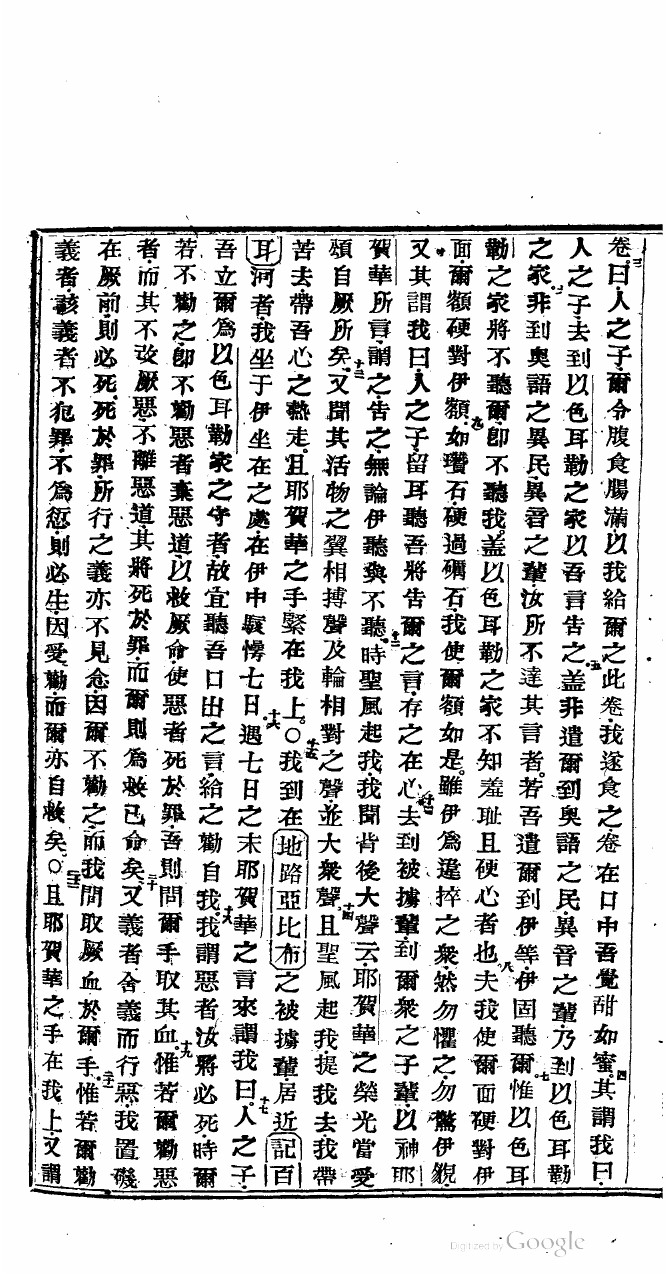 卷曰人之子爾令腹食腸滿以我給爾之此卷我遂食之卷在口中吾覺甜如蜜其謂我曰
人之子去到以色耳勒之家以吾言告之蓋非遣爾到奧語之民異音之輩乃到以色耳勒
之家非到奧語之異民異音之輩汝所不達其言者若吾遣爾到伊等伊固聽爾惟以色耳
勒之家將不聽爾卽不聽我蓋以色耳勒之家不知羞耻且硬心者也夫我使爾面硬對伊
面爾額硬對伊額如瓚石硬過礀石我使爾額如是雖伊為違悖之衆然勿懼之勿驚伊貌
又其謂我曰人之子留耳聽吾將告爾之言存之在心去到被擄輩到爾衆之子輩以神耶
賀華所言謂之告之無論伊聽與不聽時聖風起我我聞背後大聲云耶賀華之榮光當受
頌自厥所矣又聞其活物之翼相搏聲及輪相對之聲並大衆聲且聖風起我提我去我帶
苦去帶吾心之熱走且耶賀華之手緊在我上○我到在地路亞比布之被擄輩居近記百
耳河者我坐于伊坐在之處在伊中駭愕七日遇七日之末耶賀華之言來謂我曰人之子
吾立爾為以色耳勒家之守者故宜聽吾口出之言給之勸自我我謂惡者汝將必死時爾
若不勸之卽不勸惡者棄惡道以救厥命使惡者死於罪吾則問爾手取其血惟若爾勸惡
者而其不改厥惡不離惡道其將死於罪而爾則為救己命矣又義者舍義而行惡我置礙
在厥前則必死死於罪所行之義亦不見念因爾不勸之而我問取厥血於爾手惟若爾勸
義者該義者不犯罪不為愆則必生因受勸而爾亦自救矣○且耶賀華之手在我上又謂
Digitized by Google